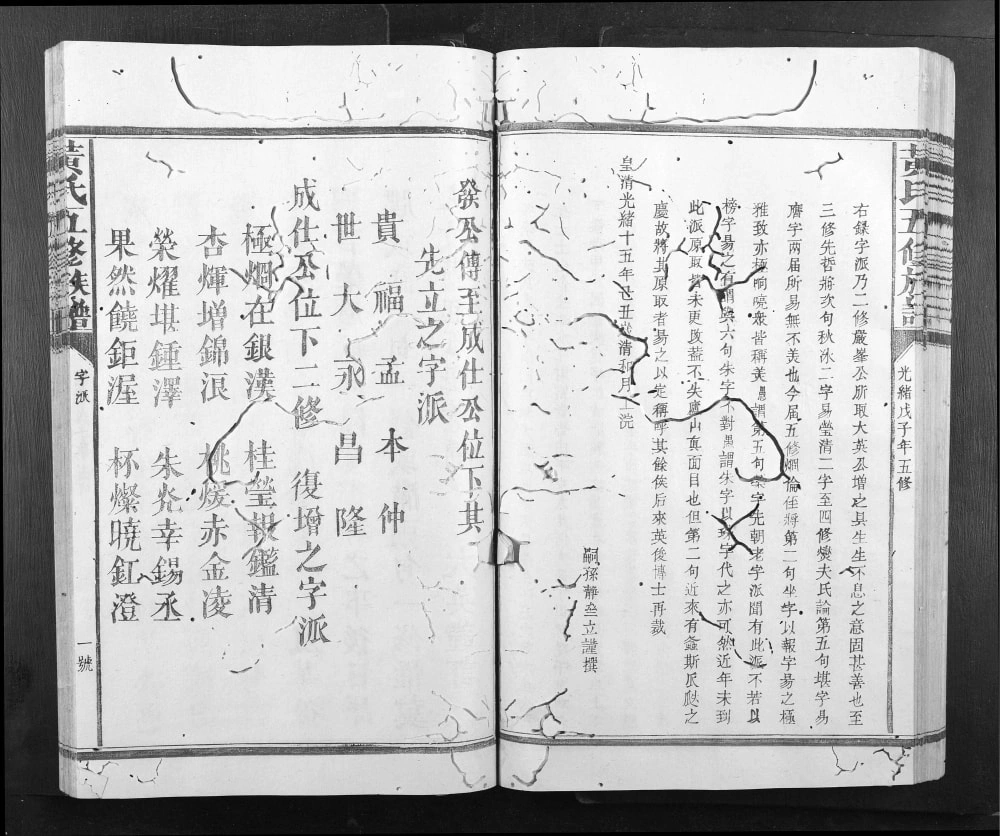 黃氏五修族譜
光緒戊子年五修
右錄字派乃二修嚴峯公所取大英公增之具生生不息之意固甚善也至
三修先哲將次句秋冰二字易瑩清二字至四修燮夫氏論第五句堪字易
膺字兩届所易無不美也今届五修烱倫侄將第二句坐字以報字昜之極
雅致亦極响喨衆皆稱美愚謂第五句榮字先朝老字派聞有此派不若以
榜字昜之有烱與六句朱字不對愚謂朱字以珍字代之亦可然近年未到
此派原取皆未更改葢不失廬山真面目也但第二句近來有螽斯瓜瓞之
慶故將其原取者昜之以定稱呼其餘俟后來英俊博士再裁
皇清光緒十五年己丑歲清和月上浣
嗣孫靜立謹撰
癸公傳至成仕公位下其
先立之字派
貴福孟本仲
世大永昌隆
成仕公位下二修 復增之字派
極烱在銀漢 桂瑩報鑑清
杏煇增錦泿 桃煖赤金凌
榮燿堪鍾澤 朱𤆬幸錫丞
果然饒鉅渥 杯燦曉釭澄
黃氏五修族譜
字派
一號